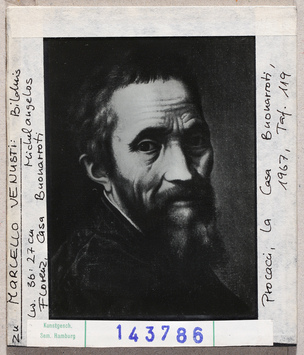 zu MARCELLO VENUSTI: Bildnis
Michelangelos
Lw. 36:27cm
Florenz, Casa Buonarroti
Procacci, La Casa Buonarroti,
1967, Taf. 119
Kunstgesch.
Sem. Hamburg
143786